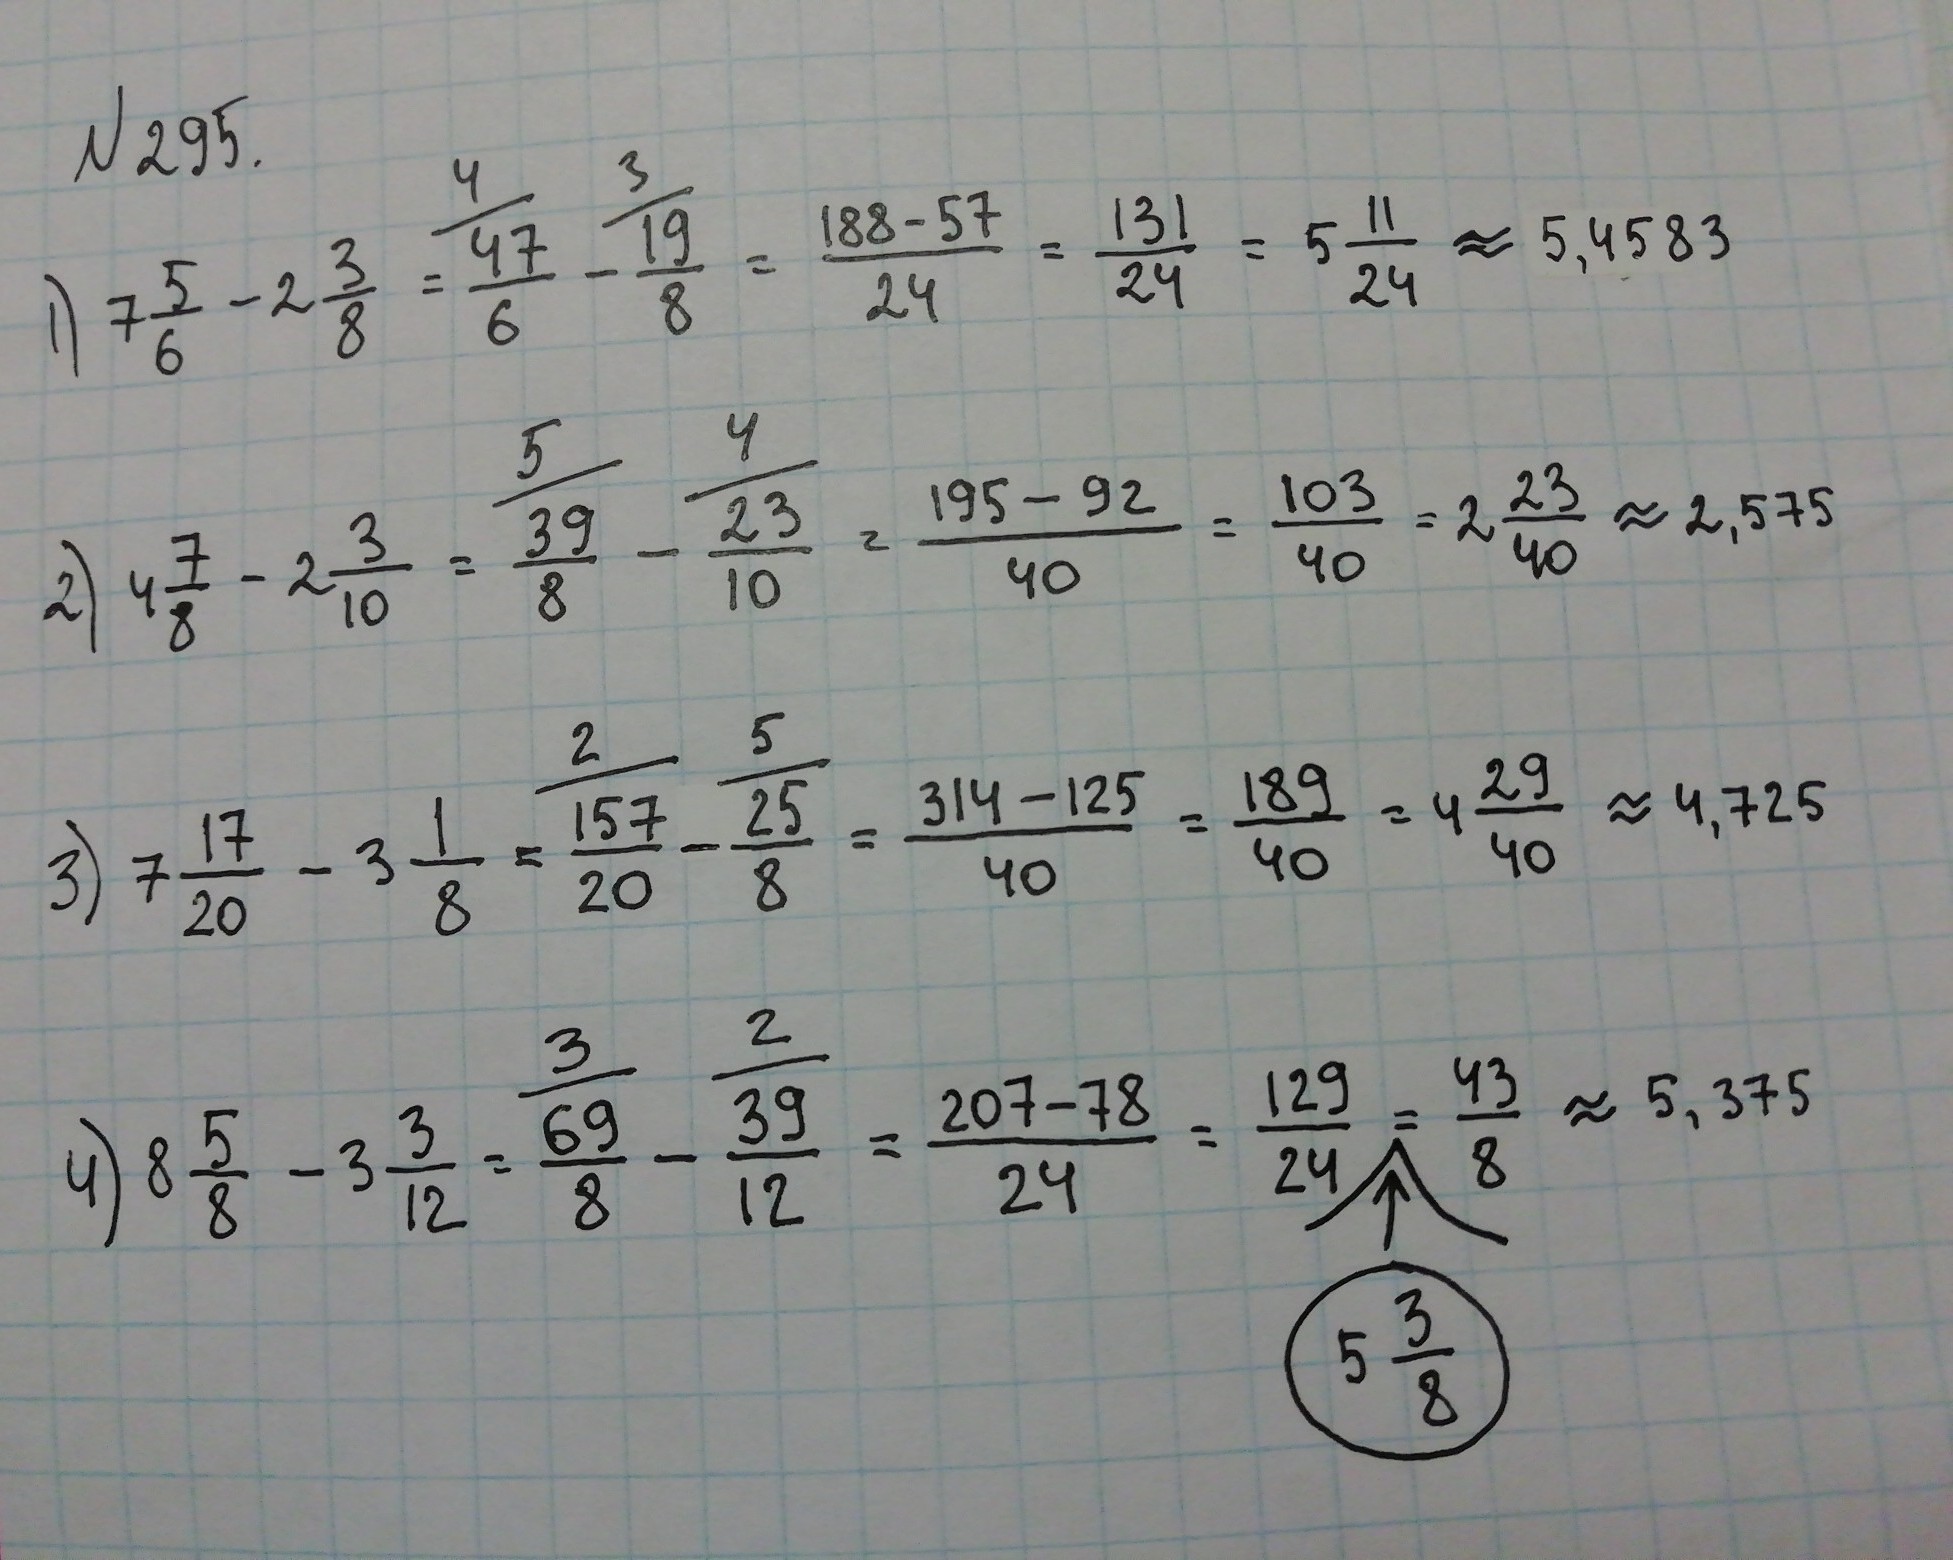 N295.
1) 7 5/6 - 2 3/8 = 4/ 47/6 - 3/ 19/8 = (188-57)/24 = 131/24 = 5 11/24 ≈ 5,4583
2) 4 7/8 - 2 3/10 = 5/ 39/8 - 4/ 23/10 = (195-92)/40 = 103/40 = 2 23/40 ≈ 2,575
3) 7 17/20 - 3 1/8 = 2/ 157/20 - 5/ 25/8 = (314-125)/40 = 189/40 = 4 29/40 ≈ 4,725
4) 8 5/8 - 3 3/12 = 3/ 69/8 - 2/ 39/12 = (207-78)/24 = 129/24 = 43/8 ≈ 5,375
5 3/8